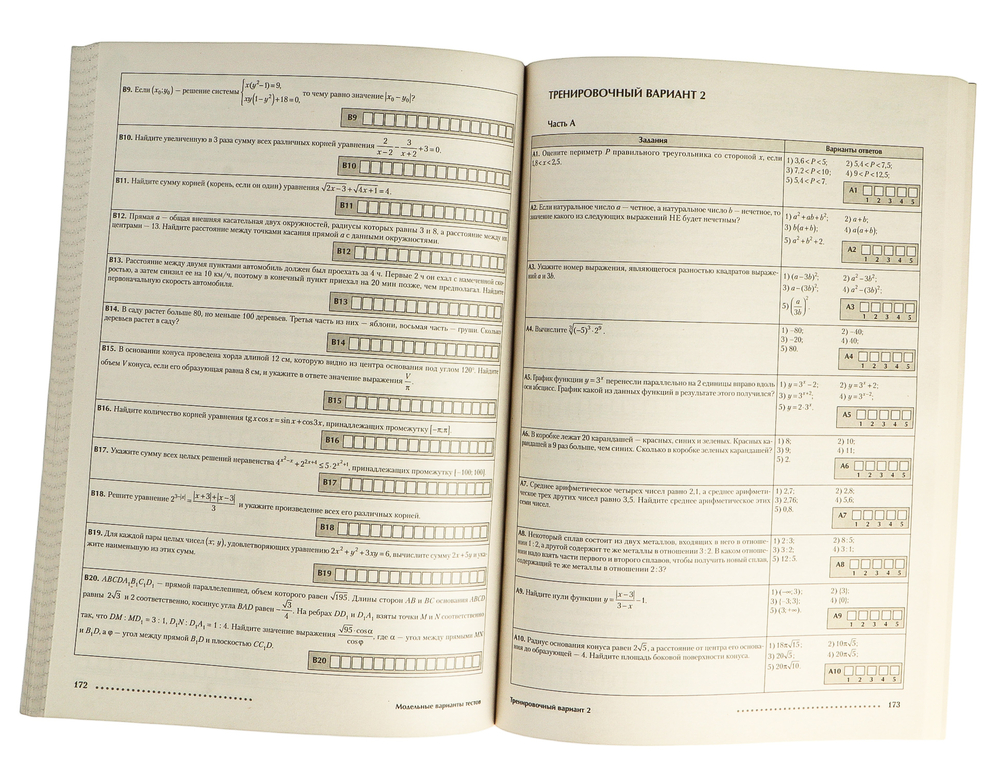 В9. Если (x₀; y₀) — решение системы { x(y²−1)=9, xy(1−y²)+18=0, то чему равно значение |x₀ − y₀|?
В9
В10. Найдите увеличенную в 3 раза сумму всех различных корней уравнения 2/(x−2) − 3/(x+2) + 3 = 0.
В10
В11. Найдите сумму корней (корень, если он один) уравнения √(2x−3) + √(4x+1) = 4.
В11
В12. Прямая a — общая внешняя касательная двух окружностей, радиусы которых равны 3 и 8, а расстояние между их
центрами — 13. Найдите расстояние между точками касания прямой a с данными окружностями.
В12
В13. Расстояние между двумя пунктами автомобиль должен был проехать за 4 ч. Первые 2 ч он ехал с намеченной ско-
ростью, а затем снизил ее на 10 км/ч, поэтому в конечный пункт приехал на 20 мин позже, чем предполагал. Найдите
первоначальную скорость автомобиля.
В13
В14. В саду растет больше 80, но меньше 100 деревьев. Третья часть из них — яблони, восьмая часть — груши. Сколько
деревьев растет в саду?
В14
В15. В основании конуса проведена хорда длиной 12 см, которую видно из центра основания под углом 120°. Найдите
объем V конуса, если его образующая равна 8 см, и укажите в ответе значение выражения V/π.
В15
В16. Найдите количество корней уравнения tg x cos x = sin x + cos 3x, принадлежащих промежутку [−π; π].
В16
В17. Укажите сумму всех целых решений неравенства
принадлежащих промежутку [−100; 100].
В17
В18. Решите уравнение
и укажите произведение всех его различных корней.
В18
В19. Для каждой пары целых чисел (x; y), удовлетворяющих уравнению 2x² + y² + 3xy = 6, вычислите сумму 2x + 5y и ука-
жите наименьшую из этих сумм.
В19
В20. ABCDA₁B₁C₁D₁ — прямой параллелепипед, объем которого равен √195. Длины сторон AB и BC основания ABCD
равны 2√3 и 2 соответственно, косинус угла BAD равен −√3/4. На ребрах DD₁ и D₁A₁ взяты точки M и N соответственно
так, что DM : MD₁ = 3 : 1, D₁N : D₁A₁ = 1 : 4. Найдите значение выражения √95·cos α / cos φ, где α — угол между прямыми MN
и B₁D, а φ — угол между прямой B₁D и плоскостью CC₁D.
В20
172
Модельные варианты тестов
ТРЕНИРОВОЧНЫЙ ВАРИАНТ 2
Часть А
Задания Варианты ответов
А1. Оцените периметр P правильного треугольника со стороной x, если
1,8 < x < 2,5.
1) 3,6 < P < 5; 2) 5,4 < P < 7,5;
3) 7,2 < P < 10; 4) 9 < P < 12,5;
5) 5,4 < P < 7.
А1
1 2 3 4 5
А2. Если натуральное число a — четное, а натуральное число b — нечетное, то
значение какого из следующих выражений НЕ будет нечетным?
1) a² + ab + b²; 2) a + b;
3) b(a + b); 4) a(a + b);
5) a² + b² + 2.
А2
1 2 3 4 5
А3. Укажите номер выражения, являющегося разностью квадратов выраже-
ний a и 3b.
1) (a − 3b)²; 2) a² − 3b²;
3) a − (3b)²; 4) a² − (3b)²;
5) (a/3b)²
А3
1 2 3 4 5
А4. Вычислите ∛((−5)³ · 2⁹).
1) −80; 2) −40;
3) −20; 4) 40;
5) 80.
А4
1 2 3 4 5
А5. График функции y = 3ˣ перенесли параллельно на 2 единицы вправо вдоль
оси абсцисс. График какой из данных функций в результате этого получился?
1) y = 3ˣ − 2; 2) y = 3ˣ + 2;
3) y = 3ˣ⁺²; 4) y = 3ˣ⁻²;
5) y = 2 · 3ˣ.
А5
1 2 3 4 5
А6. В коробке лежат 20 карандашей — красных, синих и зеленых. Красных ка-
рандашей в 9 раз больше, чем синих. Сколько в коробке зеленых карандашей?
1) 8; 2) 10;
3) 9; 4) 11;
5) 2.
А6
1 2 3 4 5
А7. Среднее арифметическое четырех чисел равно 2,1, а среднее арифмети-
ческое трех других чисел равно 3,5. Найдите среднее арифметическое этих
семи чисел.
1) 2,7; 2) 2,8;
3) 2,76; 4) 5,6;
5) 0,8.
А7
1 2 3 4 5
А8. Некоторый сплав состоит из двух металлов, входящих в него в отноше-
нии 1 : 2, а другой содержит те же металлы в отношении 3 : 2. В каком отноше-
нии надо взять части первого и второго сплавов, чтобы получить новый сплав,
содержащий те же металлы в отношении 2 : 3?
1) 2 : 3; 2) 8 : 5;
3) 3 : 2; 4) 3 : 1;
5) 12 : 5.
А8
1 2 3 4 5
А9. Найдите нули функции y = |x−3|/(3−x) − 1.
1) (−∞; 3); 2) {3};
3) {−3; 3}; 4) {0};
5) (3; +∞).
А9
1 2 3 4 5
А10. Радиус основания конуса равен 2√5, а расстояние от центра его основа-
ния до образующей — 4. Найдите площадь боковой поверхности конуса.
1) 18π√15; 2) 10π√5;
3) 20√5; 4) 20π√5;
5) 20π√10.
А10
1 2 3 4 5
Тренировочный вариант 2
173